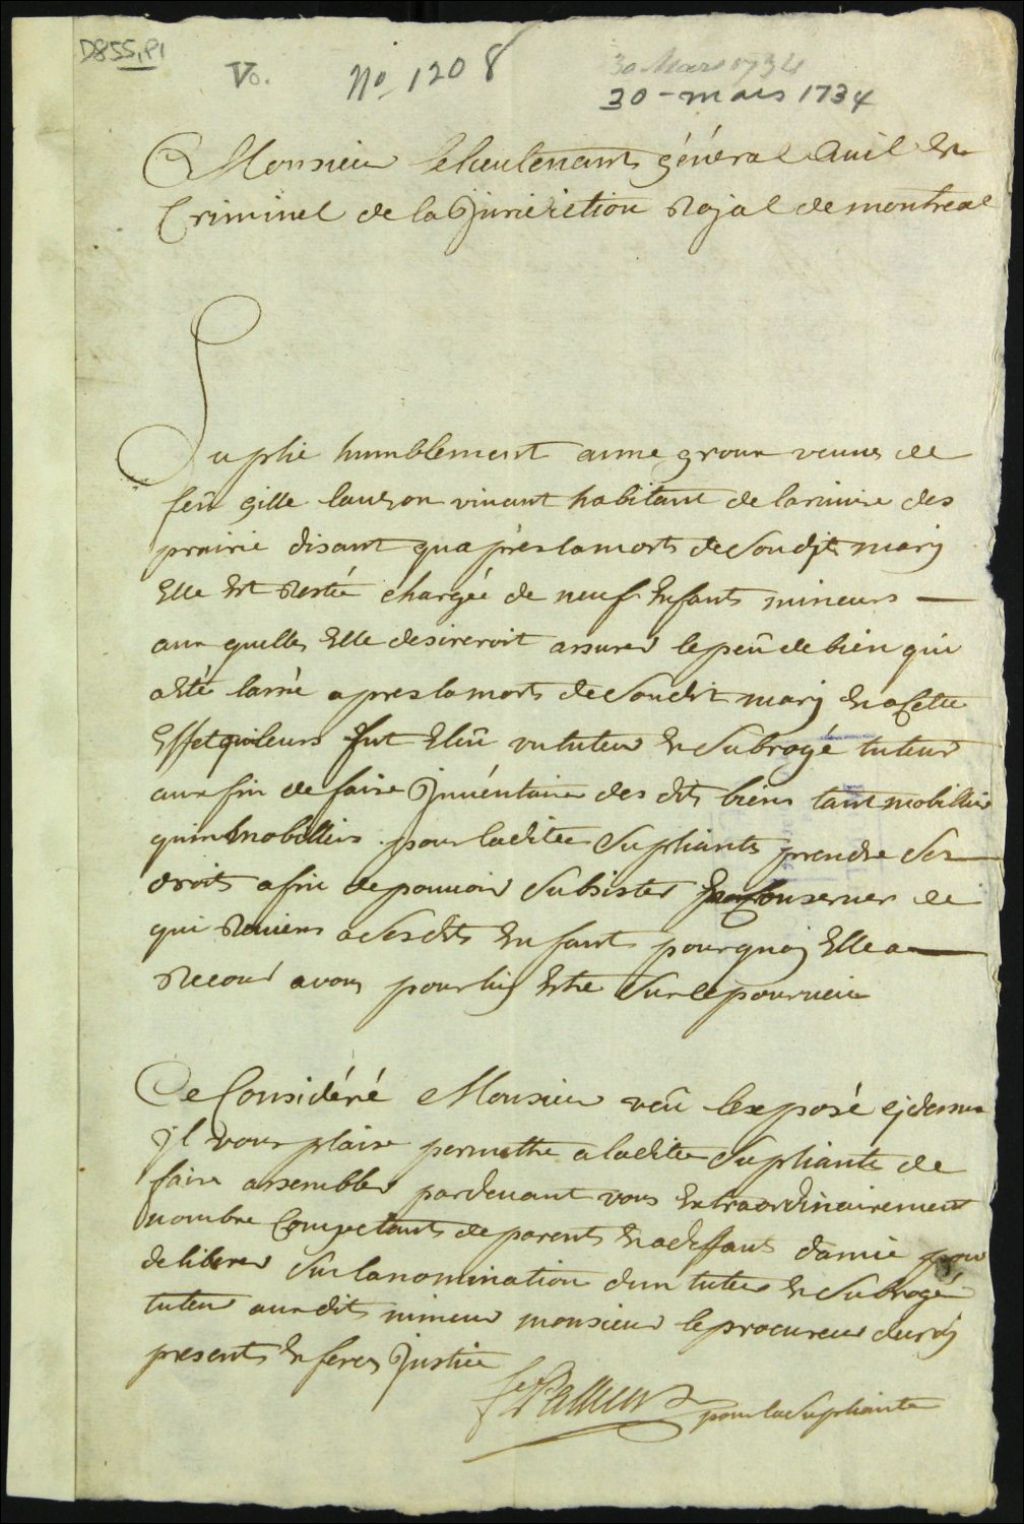 D855,P1
Vo. No 1208
30 Mars 1734
30 - mars 1734
Monsieur le lieutenant général Civil Et
Criminel de la Juridiction Royal de montreal
Suplie humblement anne groux veuve de
feû gille lauzon vivant habitant de la riviere des
prairie disant qua près la mort de Son dit mary
Elle Est Restée chargée de neuf Enfants mineurs —
aux quelles Elle desireroit assurer le peû de bien qui
a Eté laissé apres la mort de Son dit mary En a Cette
Effet qu'il leurs fut Eliû un tuteur Et Subrogé tuteur
aux fin de faire Jnvéntaire des dits biens tant mobilliers
quimmobilliers pour ladite Supliante prendre Ses
droits afin de pouvoir Subsister Et Conserver ce
qui Reviens a Ses dits Enfants pourquoy Elle a —
Recour a vous pour luy Estre Sur ce pourveue
Ce Considéré Monsieur veû l'exposé cy dessus
Jl vous plaise permettre a ladite Supliante de
faire assembler pardevant vous Extraordinairement
nombre Competant de parents En a deffaut damie pour
deliberer Sur la nomination dun tuteur Et Subrogé
tuteur aux dit mineurs monsieur le procureur du roy
present Et feres Justice
pour la Supliante